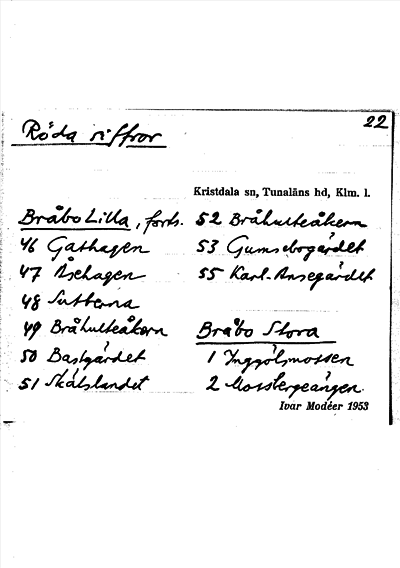 22
Röda siffror
Kristdala sn, Tunaläns hd, Klm. l.
Bråbo Lilla, forts.
46 Gathagen
47 Åsehagen
48 Sutterna
49 Bråhulteåkern
50 Bastgärdet
51 Skälslandet
52 Bråhulteåkern
53 Gumsebogärdet
55 Karl-Ansegärdet
Bråbo Stora
1 Inggölsmossen
2 Mossbergeängen
Ivar Modéer 1953